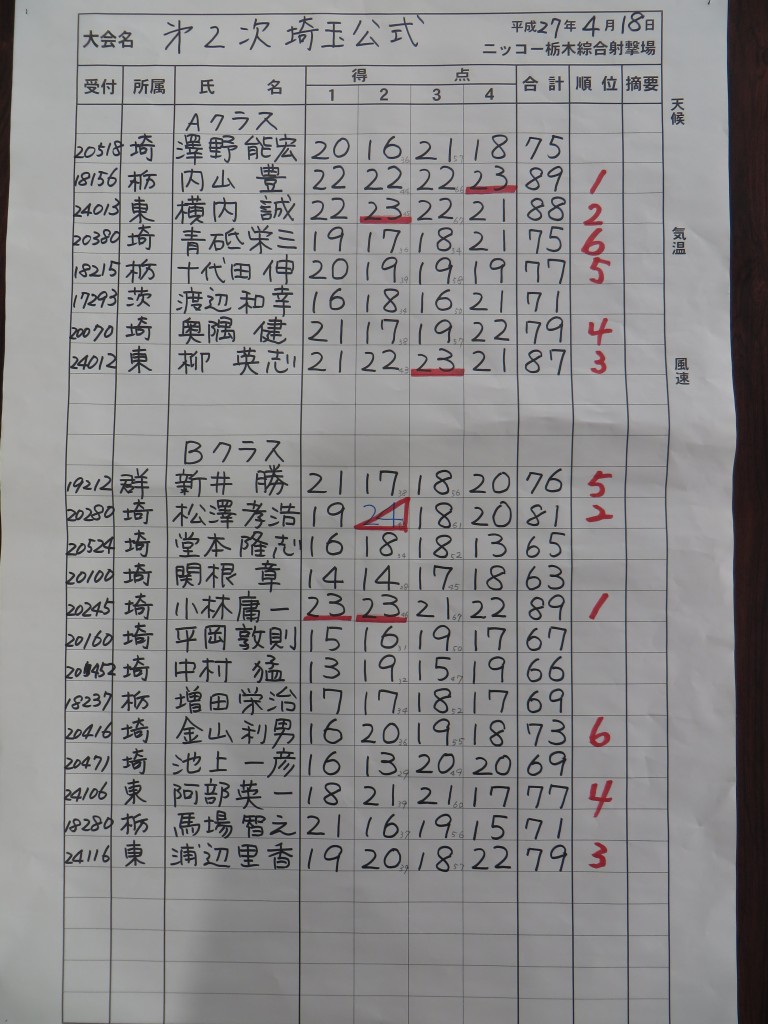 大会名 第2次埼玉公式 平成27年4月18日
ニッコー栃木綜合射撃場
受付 所属 氏 名 得 点 合計 順位 摘要
1 2 3 4
天候
気温
風速
Aクラス
20518 埼 澤野能宏 20 16 21 18 75
18156 栃 内山 豊 22 22 22 23 89 1
24013 東 横内 誠 22 23 22 21 88 2
20380 埼 青砥栄三 19 17 18 21 75 6
18215 栃 十代田 伸 20 19 19 19 77 5
17293 茨 渡辺和幸 16 18 16 21 71
20070 埼 奥隅 健 21 17 19 22 79 4
24012 東 柳 英志 21 22 23 21 87 3
Bクラス
19212 群 新井 勝 21 17 18 20 76 5
20280 埼 松澤孝浩 19 24 18 20 81 2
20524 埼 堂本隆志 16 18 18 13 65
20100 埼 関根 章 14 14 17 18 63
20245 埼 小林庸一 23 23 21 22 89 1
20160 埼 平岡敦則 15 16 19 17 67
埼 中村 猛 13 19 15 19 66
18237 栃 増田栄治 17 17 18 17 69
20416 埼 金山利男 16 20 19 18 73 6
20471 埼 池上一彦 16 13 20 20 69
24106 東 阿部英一 18 21 21 17 77 4
18280 栃 馬場智之 21 16 19 15 71
24116 東 浦辺里香 19 20 18 22 79 3